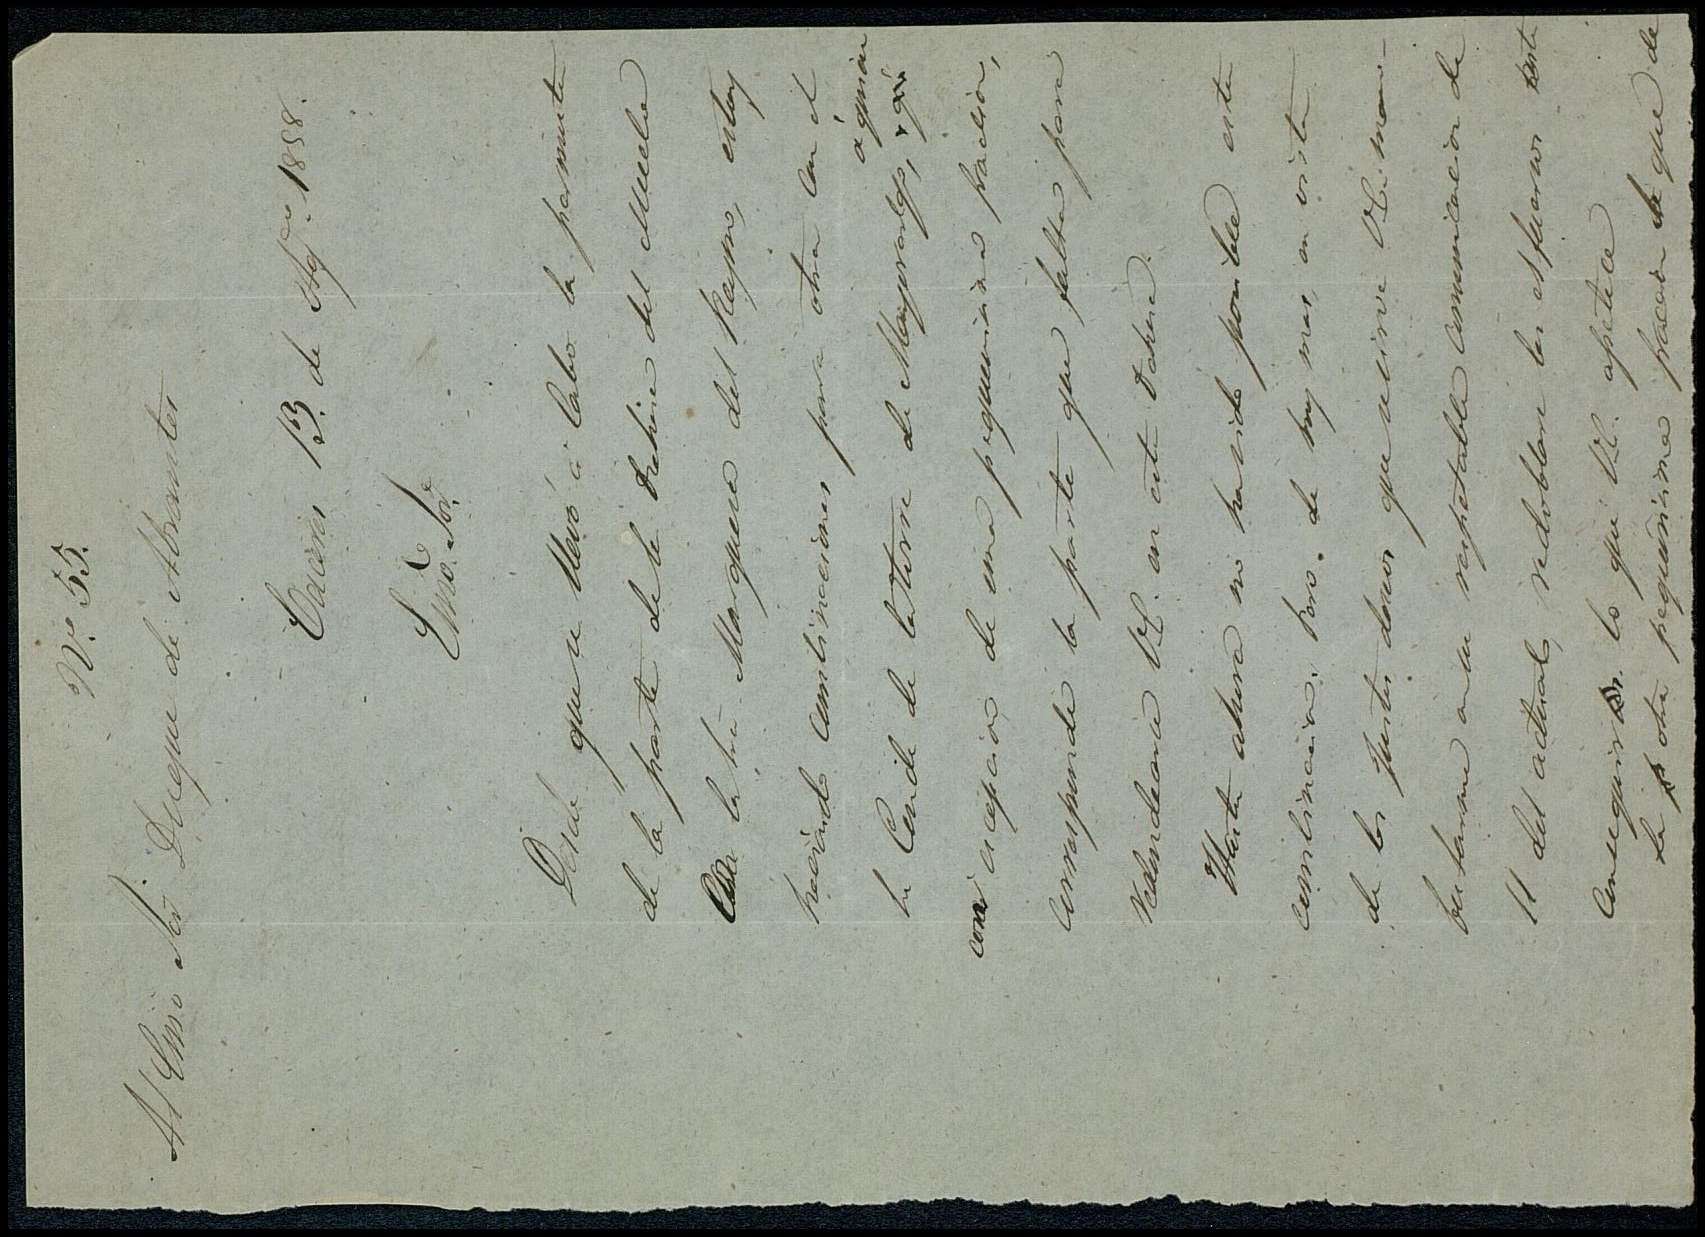 Nº 55.
Al Exmo Sor Duque de Abrantes
Caceres 13. de Agto. 1858.
Exmo. Sor.
Desde que se llevó á cabo la permuta
de la parte de la Dehesa del Muelo
con la Sra. Marquesa del Reyno, estoy
haciendo combinaciones para otra con el
Sr. Conde de la Torre de Mayoralgo, á quien
con escepcion de una pequeñisima fraccion,
corresponde la parte que falta para
redondearse VE. en esta Dehesa.
Hasta ahora no ha sido posible esta
combinacion, pero de hoy mas, en vista
de los justos deseos que se sirve VE. mani-
festarme en su respetable comunicacion de
11 del actual, redoblare los esfuerzos hasta
conseguir lo que VE. apetece
La otra pequeñisima fraccion que de